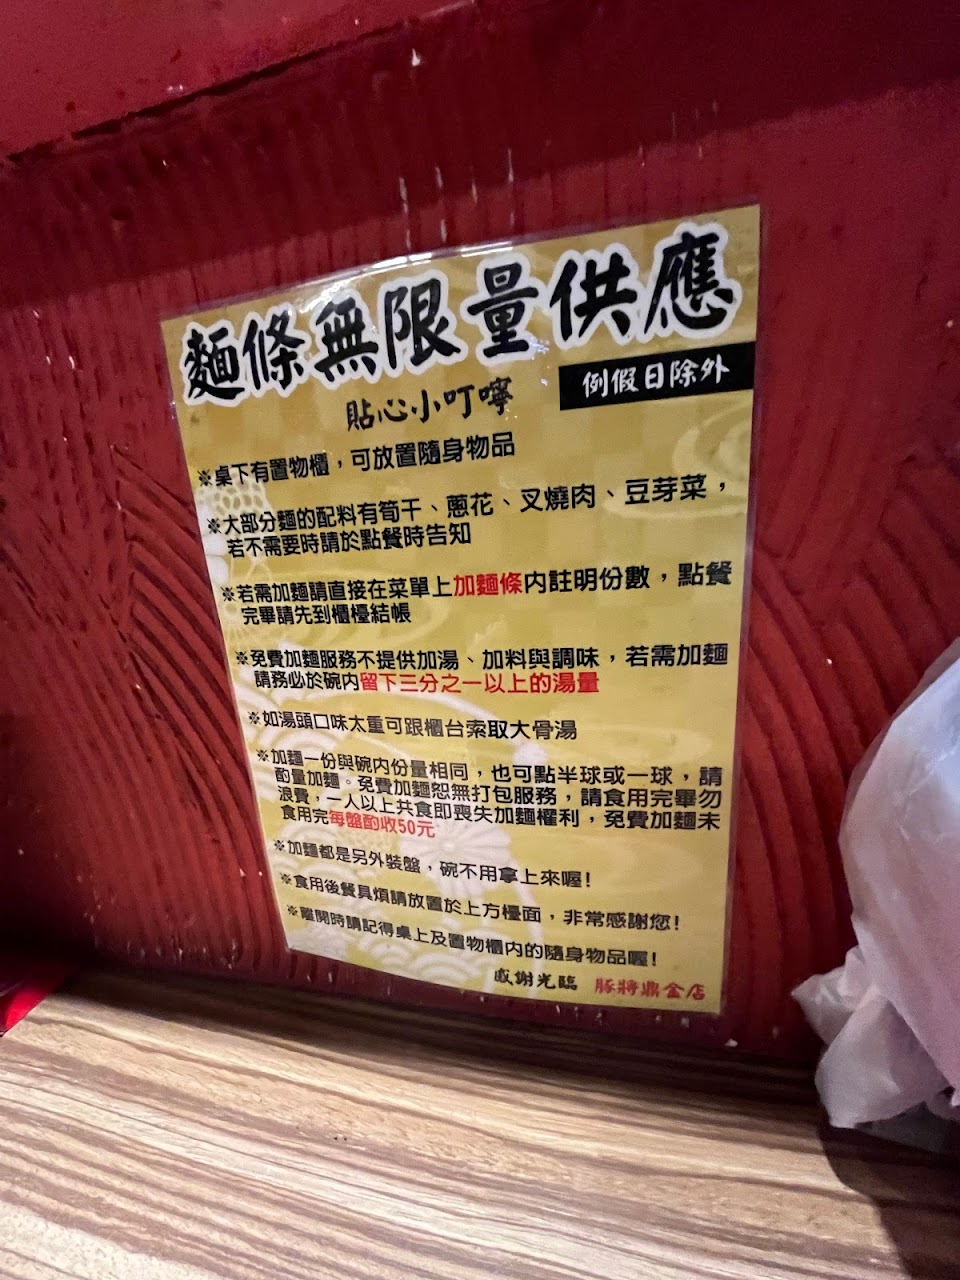 麵條無限量供應
例假日除外
貼心小叮嚀
※桌下有置物櫃，可放置隨身物品
※大部分麵的配料有筍干、蔥花、叉燒肉、豆芽菜，
若不需要時請於點餐時告知
※若需加麵請直接在菜單上加麵條內註明份數，點餐
完畢請先到櫃檯結帳
※免費加麵服務不提供加湯、加料與調味，若需加麵
請務必於碗內留下三分之一以上的湯量
※如湯頭口味太重可跟櫃台索取大骨湯
※加麵一份與碗內份量相同，也可點半球或一球，請
酌量加麵。免費加麵恕無打包服務，請食用完畢勿
浪費，一人以上共食即喪失加麵權利，免費加麵未
食用完每盤酌收50元
※加麵都是另外裝盤，碗不用拿上來喔！
※食用後餐具煩請放置於上方檯面，非常感謝您！
※離開時請記得桌上及置物櫃內的隨身物品喔！
感謝光臨 豚將鼎金店